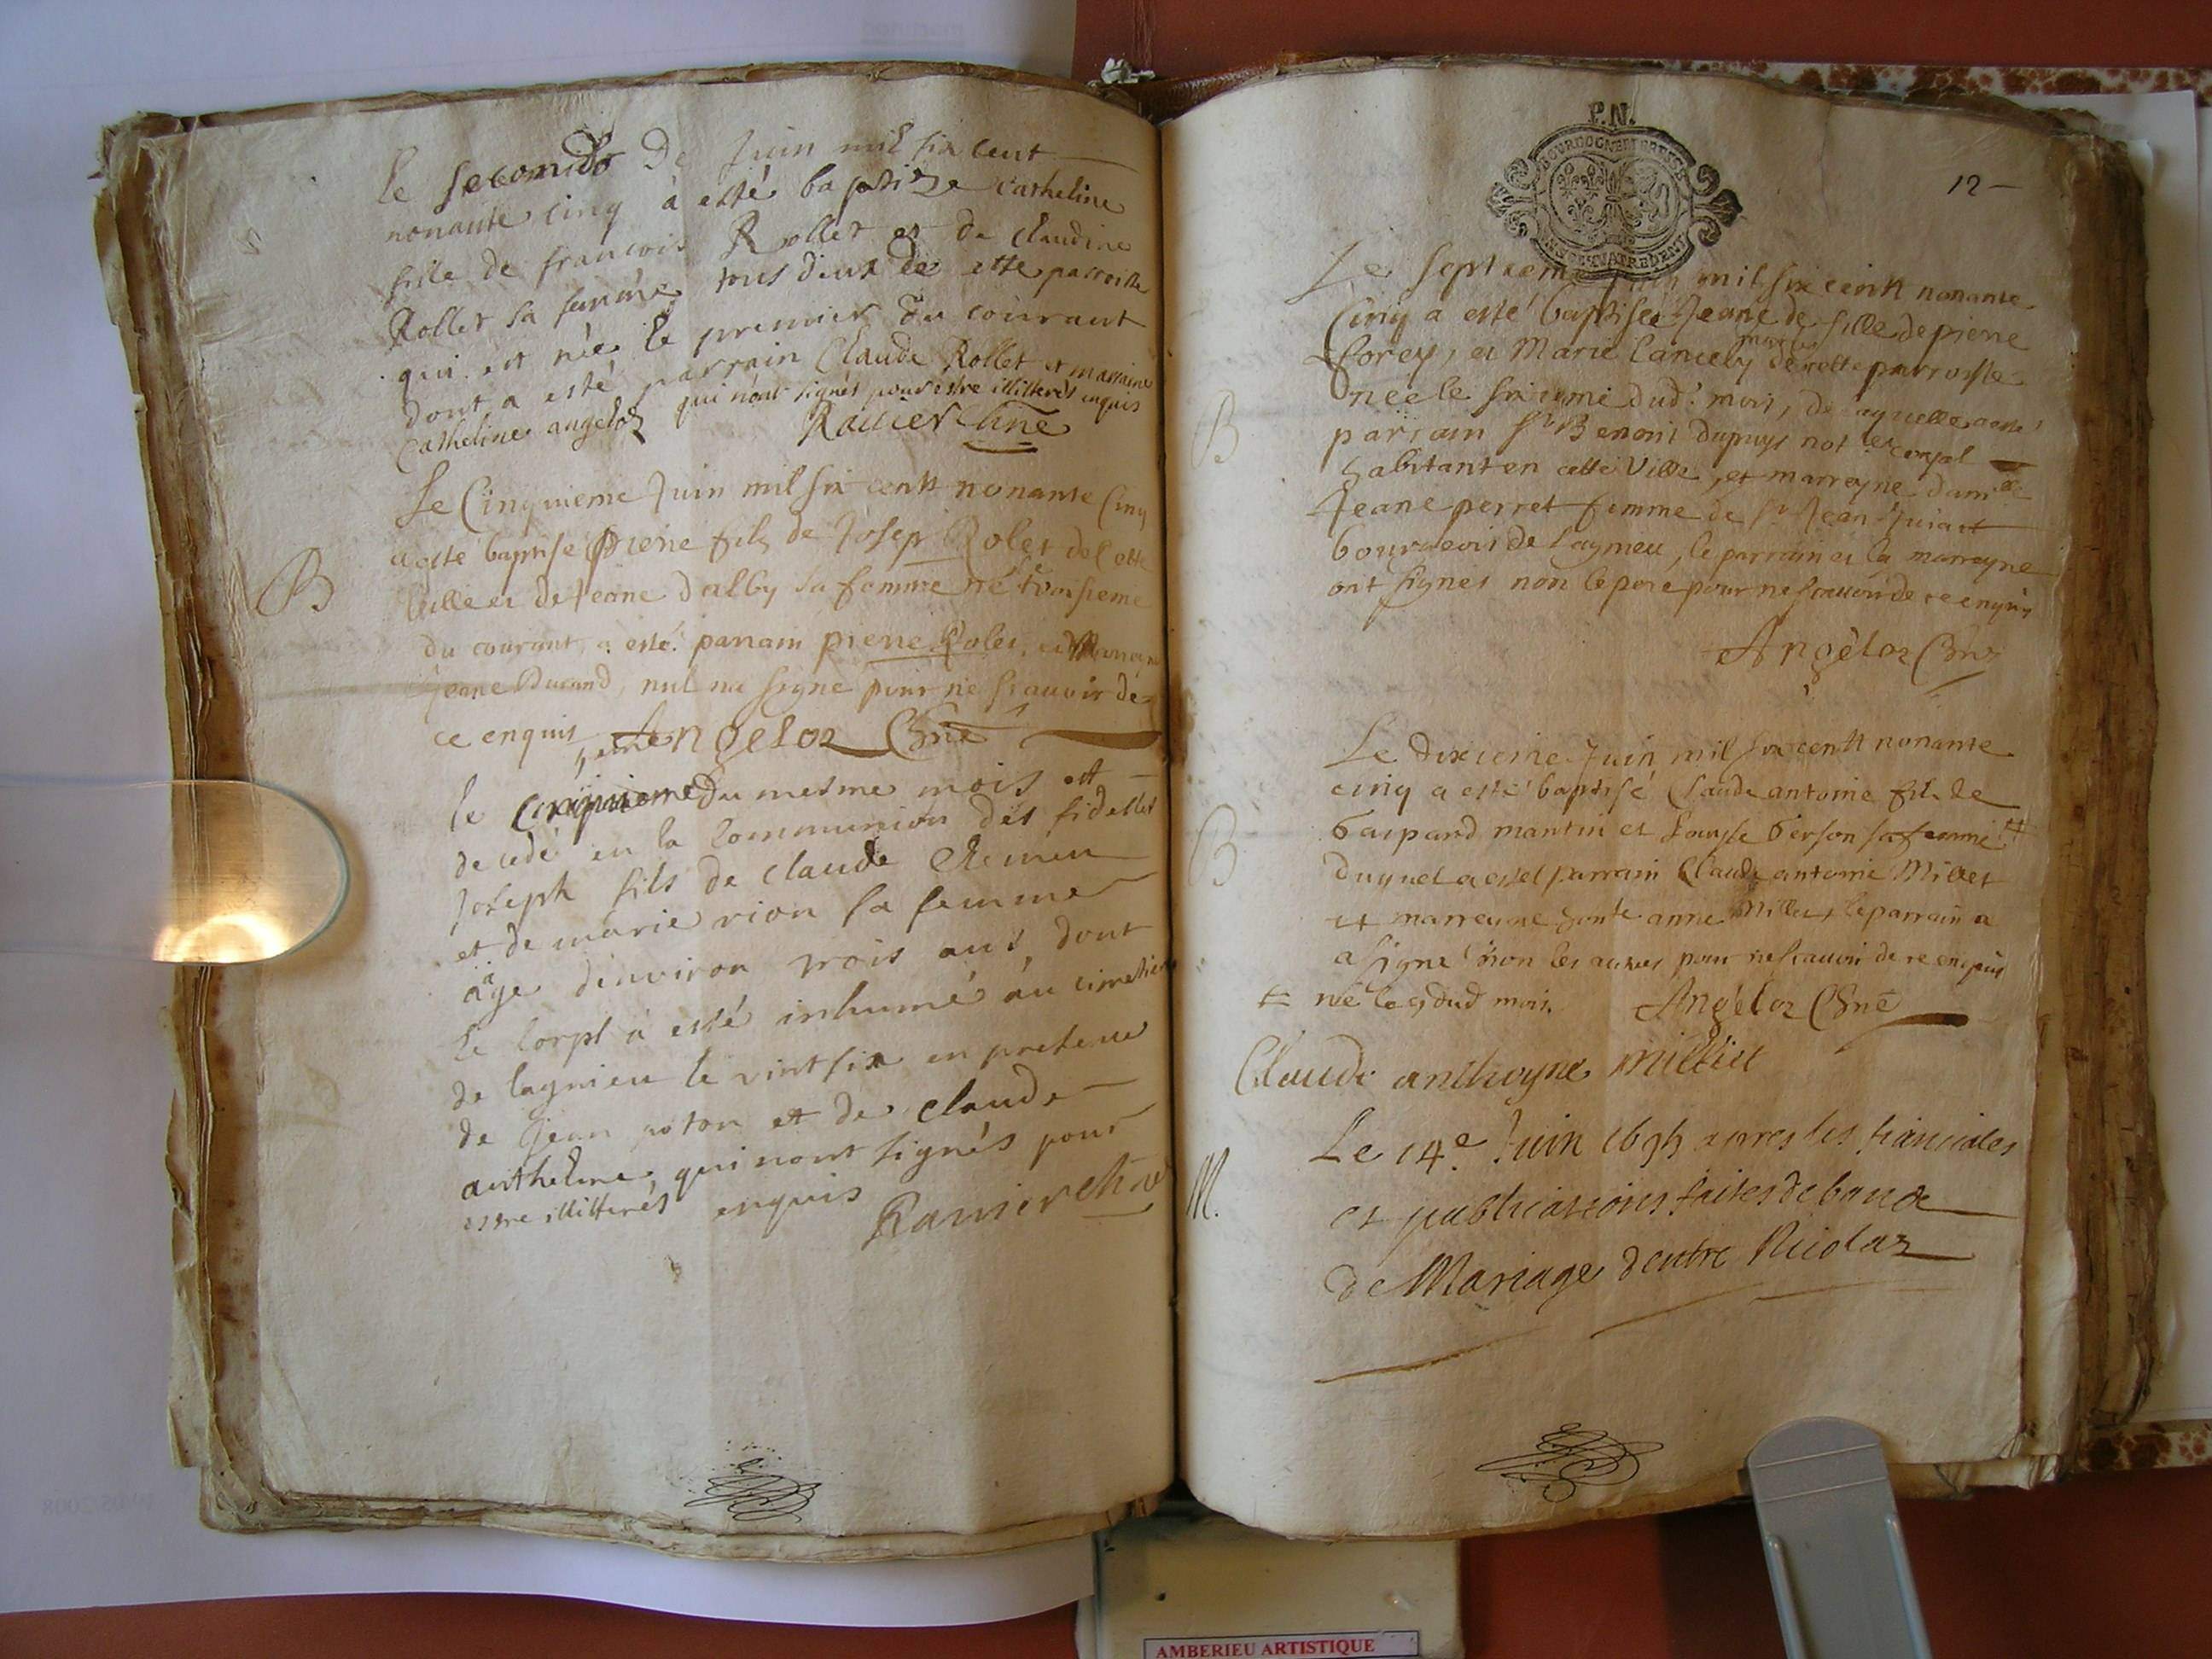 le second de Juin mil six cent
nonante cinq à esté baptize catheline
fille de francois Rollet et de claudine
Rollet sa femme tous deux de cette parroisse
qui est née le premier du courant
dont a esté parrain Claude Rollet et marraine
catheline angeloz qui nont signés pour estre illitterés enquis
Ravier Chne
Le Cinquieme Juin mil six centt nonante Cinq
a esté baptise piere fils de Josep Rolet de Cette
ville et de Jeane dalby sa femme né troisieme
B
du courant, a esté parrain piere Rolet, et Marraine
Jeane Durand, nul na signe pour ne scauoir de
ce enquis Angeloz Chne
le du mesme mois est
decedé en la Communion des fidelles
Joseph fils de claude Chemin
et de marie rion sa femme
âge denviron trois ans, dont
le corps à esté inhumé au cimetier
de lagnieu le vint six en presence
de Jean poton et de claude
antheline, qui nont signés pour
estre illitterés enquis
Ravier Chne
P.N.
BOURGOGNE ET BRESSE
12
Le septieme mil six centt nonante
Cinq a esté baptisée Jeane fille de piere
forey, et Marie Lancely de cette parroisse
nee le sixieme dud. mois, de laquelle a esté
parrain Sr Benoit dupuys not.
B
habitant en cette Ville, et marreyne
Jeane perret femme de Sr Jean
bourgeois de Lagnieu, le parrain et la marreyne
ont signes non le pere pour ne scauoir de ce enquis
Angeloz Chne
Le dixieme Juin mil six centt nonante
cinq a esté baptisé Claude antoine fils de
Gaspard mantin et Louyse Gerson sa femme
B
duquel a esté parrain Claude antoine Millet
et marreyne anne Millet, le parrain a
a signe non les autres pour ne scauoir de ce enquis
né le 9 dud mois. Angeloz Chne
Claude anthoyne milliet
Le 14e Juin 1695 apres les fiancailles
M.
et publications faites de bancs
de Mariage dentre Nicolas
AMBERIEU ARTISTIQUE